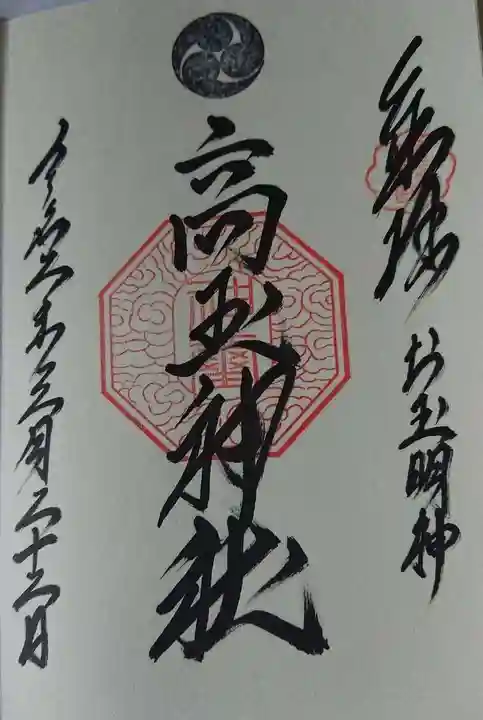 奉拝
お玉明神
高玉神社
令和六年三月二十六日